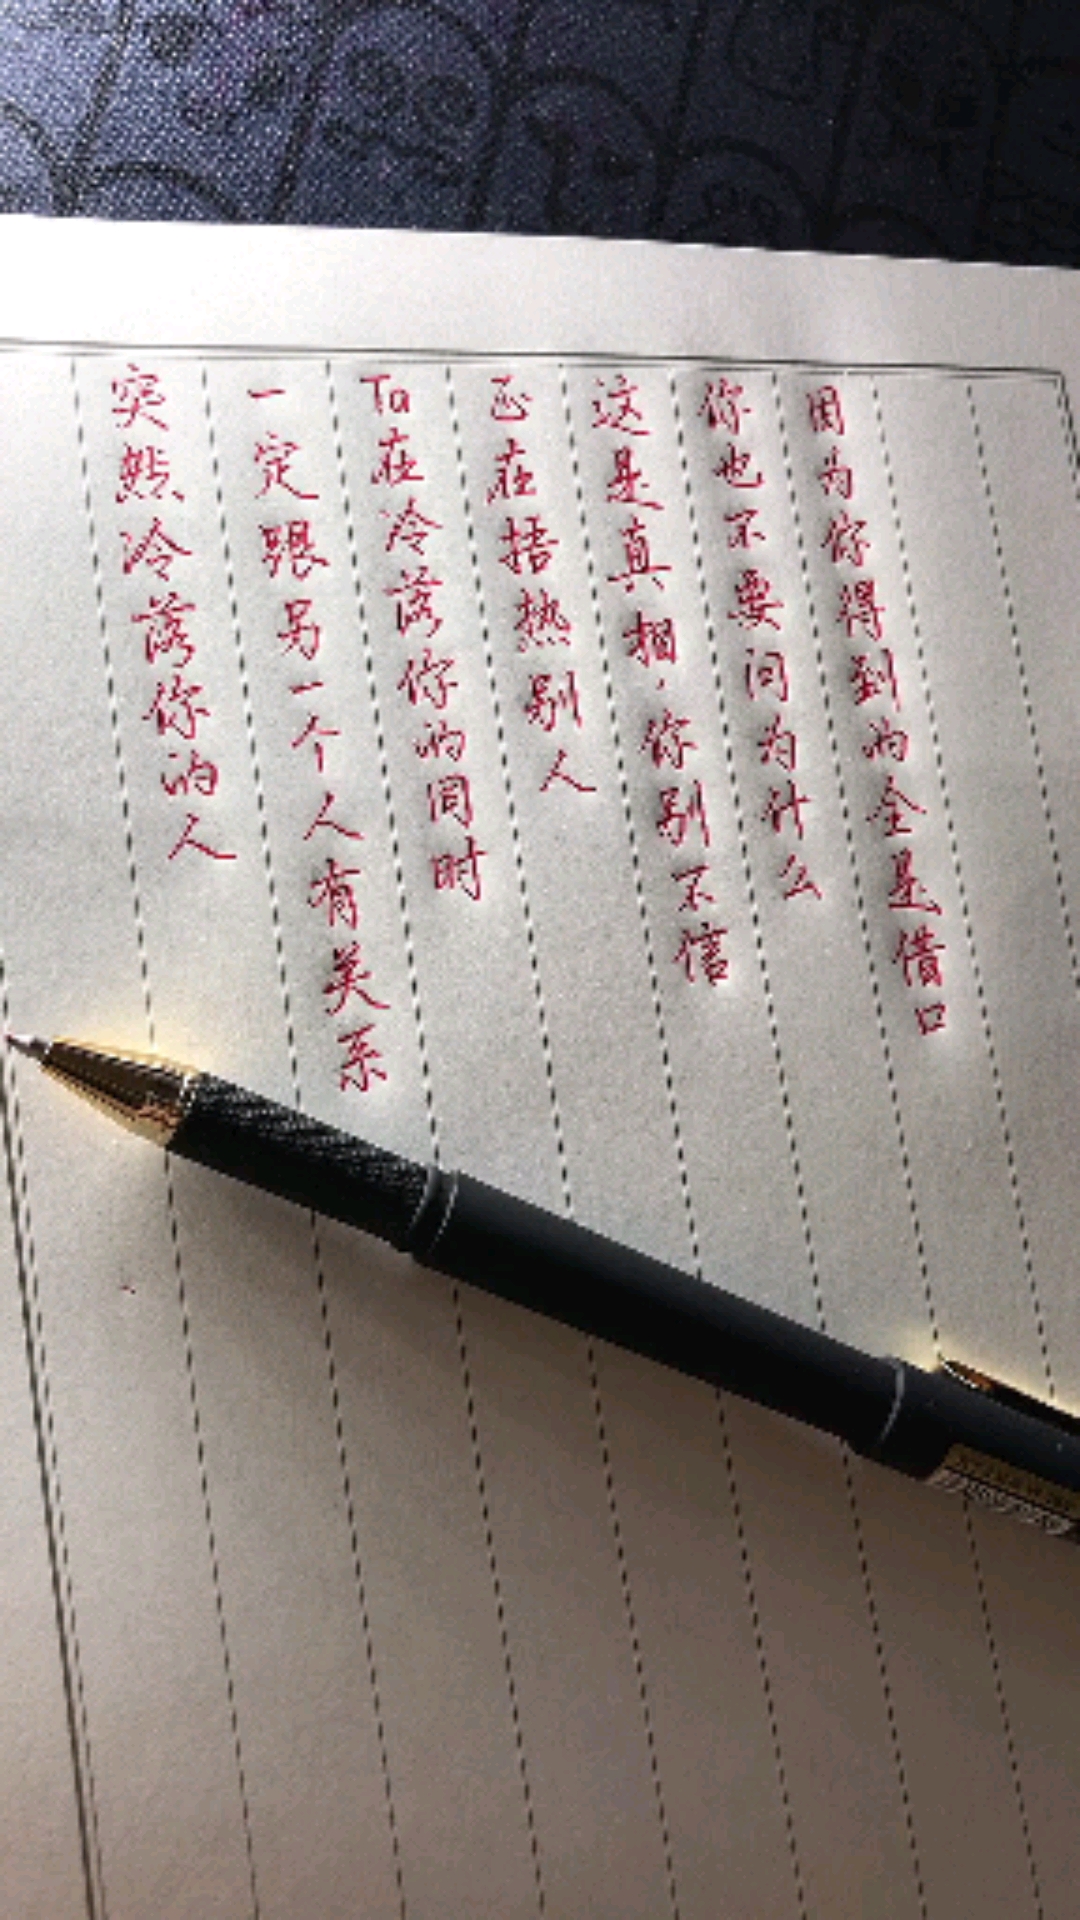 突然冷落你的人
一定跟另一个人有关系
Ta在冷落你的同时
正在捂热别人
这是真相，你别不信
你也不要问为什么
因为你得到的全是借口